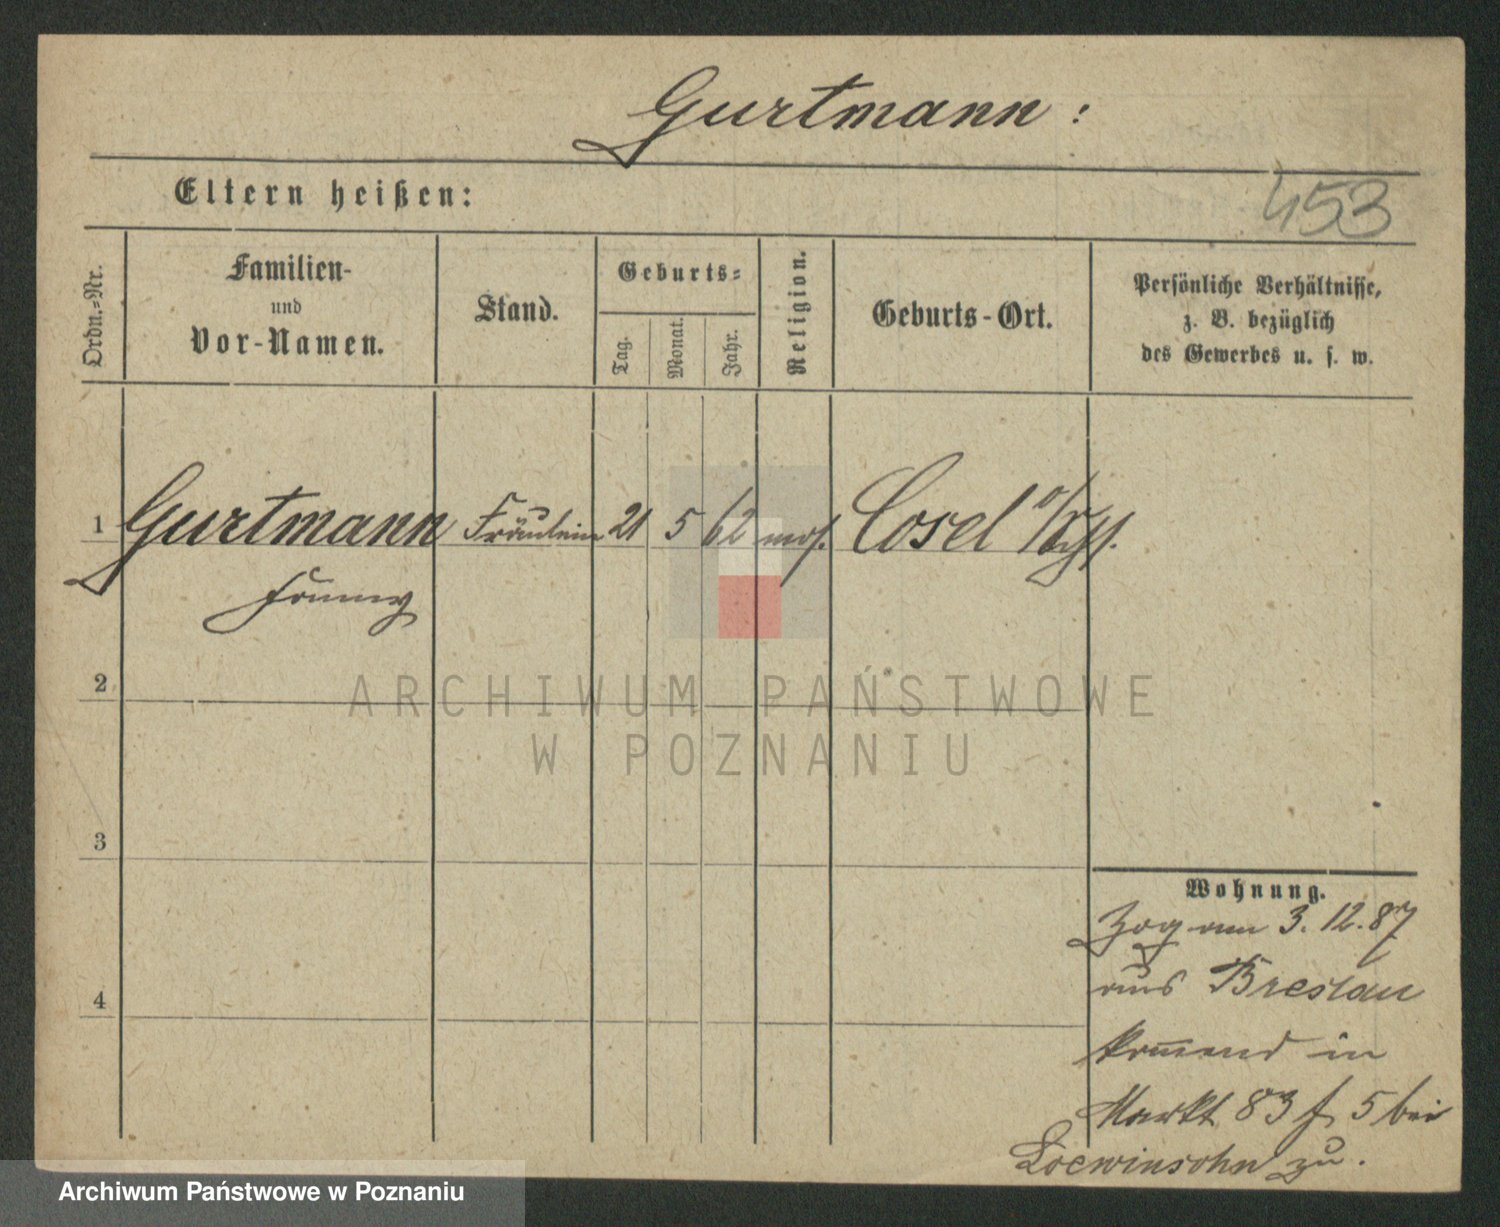 Gurtmann:
Eltern heißen:
453
Ordn.-Nr.
Familien-
und
Vor-Namen.
Stand.
Geburts-
Tag.
Monat.
Jahr.
Religion.
Geburts-Ort.
Persönliche Verhältnisse,
z. B. bezüglich
des Gewerbes u. s. w.
1 Gurtmann Fräulein 21 5 62 mos. Cosel O/Schl.
Fanny
2
3
4
Wohnung.
Zog am 3. 12. 87
aus Breslau
kom̅end in
Markt 83 f 5 bei
Loewinsohn zu.
ARCHIWUM PAŃSTWOWE
W POZNANIU
Archiwum Państwowe w Poznaniu